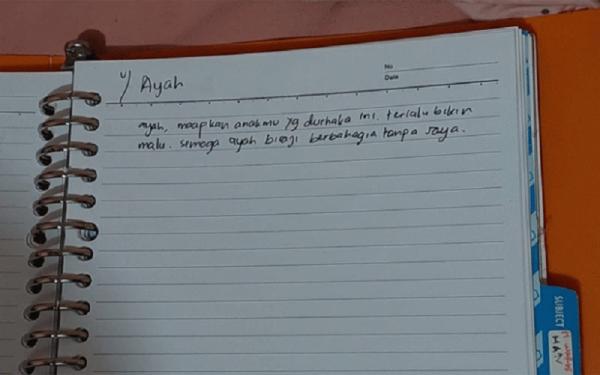 4) Ayah
No
Date
ayah, maapkan anakmu yg durhaka ini. terlalu bikin
malu. semoga ayah bisaji berbahagia tanpa saya.
SUBJECT